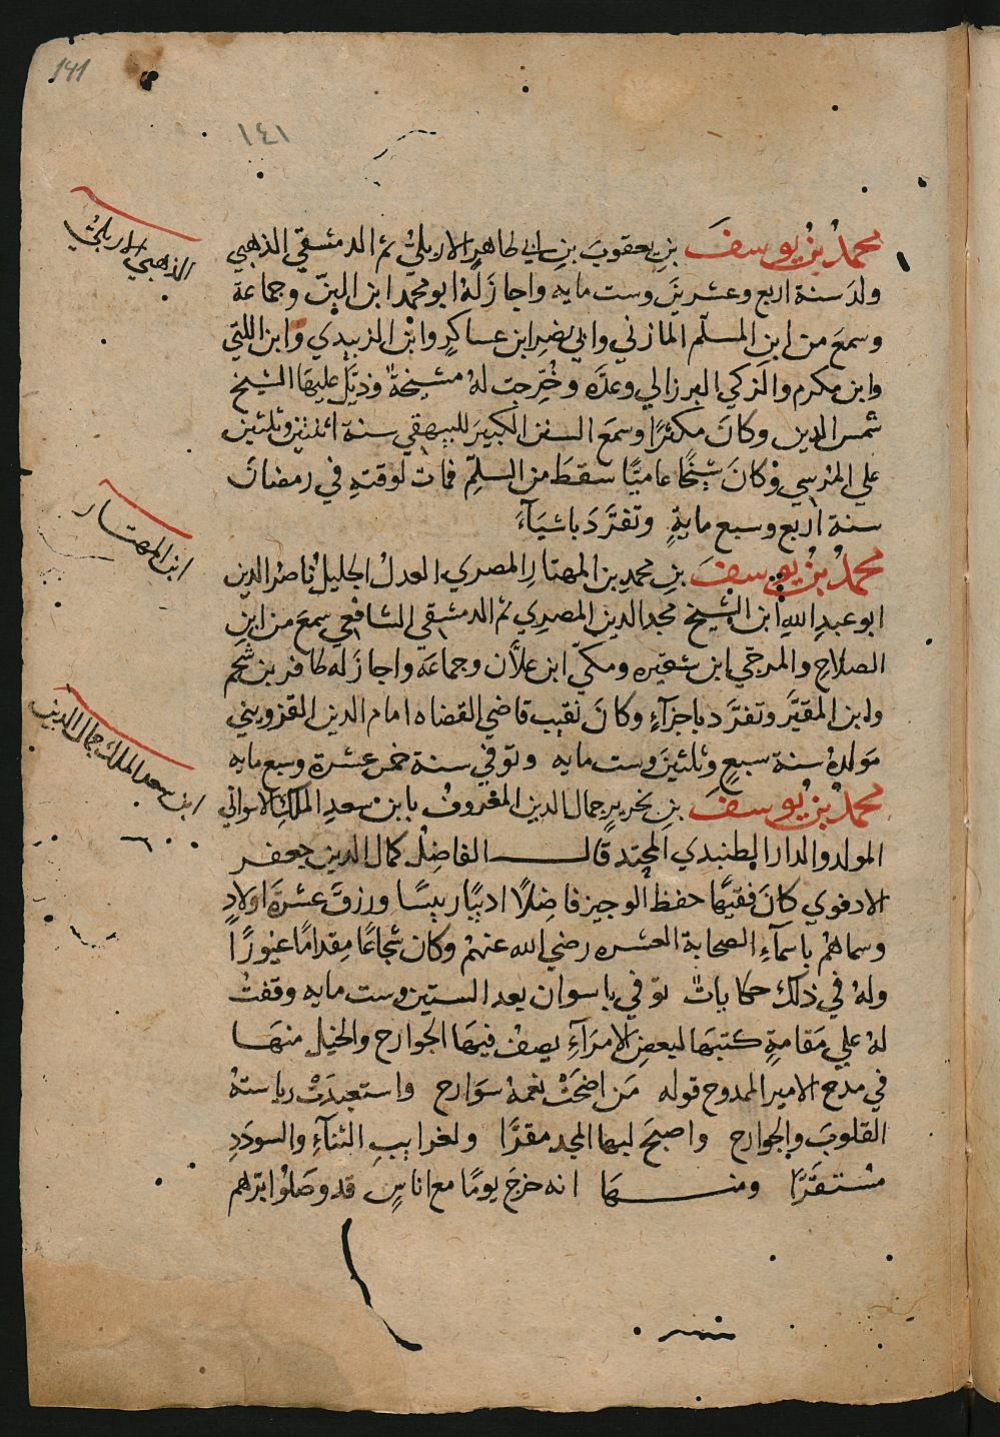 141
١٤١
محمدُ بنُ يوسفَ بنِ يعقوبَ بنِ ابي طاهرٍ الاربليُّ ثم الدمشقي الذهبي
الذهبي الاربليُّ
ولدَ سنة اربع وعشرينَ وست مايه واجازَ لهُ ابو محمد ابن البنّ وجماعة
وسمعَ من ابن المسلّم المازني وابي نصرِ ابن عساكرٍ وابن الزبيدي وابن اللتّي
وابن مكرم والزكي البرزالي وعدّه وخُرّجت لهُ مشيخةٌ وذيَّل عليهَا الشيخ
شمس الدين وكانَ مكثرًا وسمعَ السنن الكبيرَ للبيهقي سنة اثنتين وثلثين
علي المرسي وكانَ شيخًا عاميًّا سقطَ من السلّمِ فماتَ لوقتهِ في رمضانَ
سنة اربع وسبع مايةٍ وتفرَّدَ باشيَآءَ
ابن المهتار
محمدُ بنُ يوسفَ بنِ محمدِ بن المهتارِ المصري العدلُ الجليلُ ناصرُ الدين
ابو عبدِ اللهِ ابن الشيخ مجد الدين المصري ثم الدمشقي الشافعي سمعَ من ابنِ
الصلاحِ والمرجّي ابن شقيره ومكّي ابن علّان وجماعَة واجازَ له ظافر بن شحم
وابن المقيَّر وتفرَّد باجزآءٍ وكانَ نقيب قاضي القضاه امام الدين القزويني
مَولدهُ سنة سبعٍ وثلثينَ وست مايه وتوفي سنة خمس عشرة وسبع مايه
ابن سعد الملك جمال الدين
محمدُ بنُ يُوسفَ بنِ نحريرٍ جمال الدين المعروفُ بابن سعدِ الملكِ الاسواني
المولد والدار الطنبدي المحتد قال الفاضِلُ كمال الدين جعفر
الادفوي كانَ فقيهًا حفظ الوجيز فاضِلًا اديبًا رييسًا ورزقَ عشرَة اولادٍ
وسماهُم باسمآءِ الصحابة العشره رضي الله عنهُم وكان شجاعًا مِقدامًا غيورًا
ولهُ في ذلك حكاياتٌ توفي باسوان بعد الستين وست مايه وقفتُ
لهُ علي مَقامةٍ كتبهَا لبعضِ الامرَآءِ يصفُ فيهَا الجوارح والخيل منهَا
في مدح الامير الممدوح قوله مَن اضحَتْ نعمهُ سوَارح واستعبدَتْ رياستهُ
القلوبَ والجوارح واصبحَ لبها المجد مقرًّا ولغراييبِ الثنآءِ والسودَدِ
مُستقرًّا ومنهَا انه خرجَ يومًا مع اناسٍ قد وصَلُوا برّهم